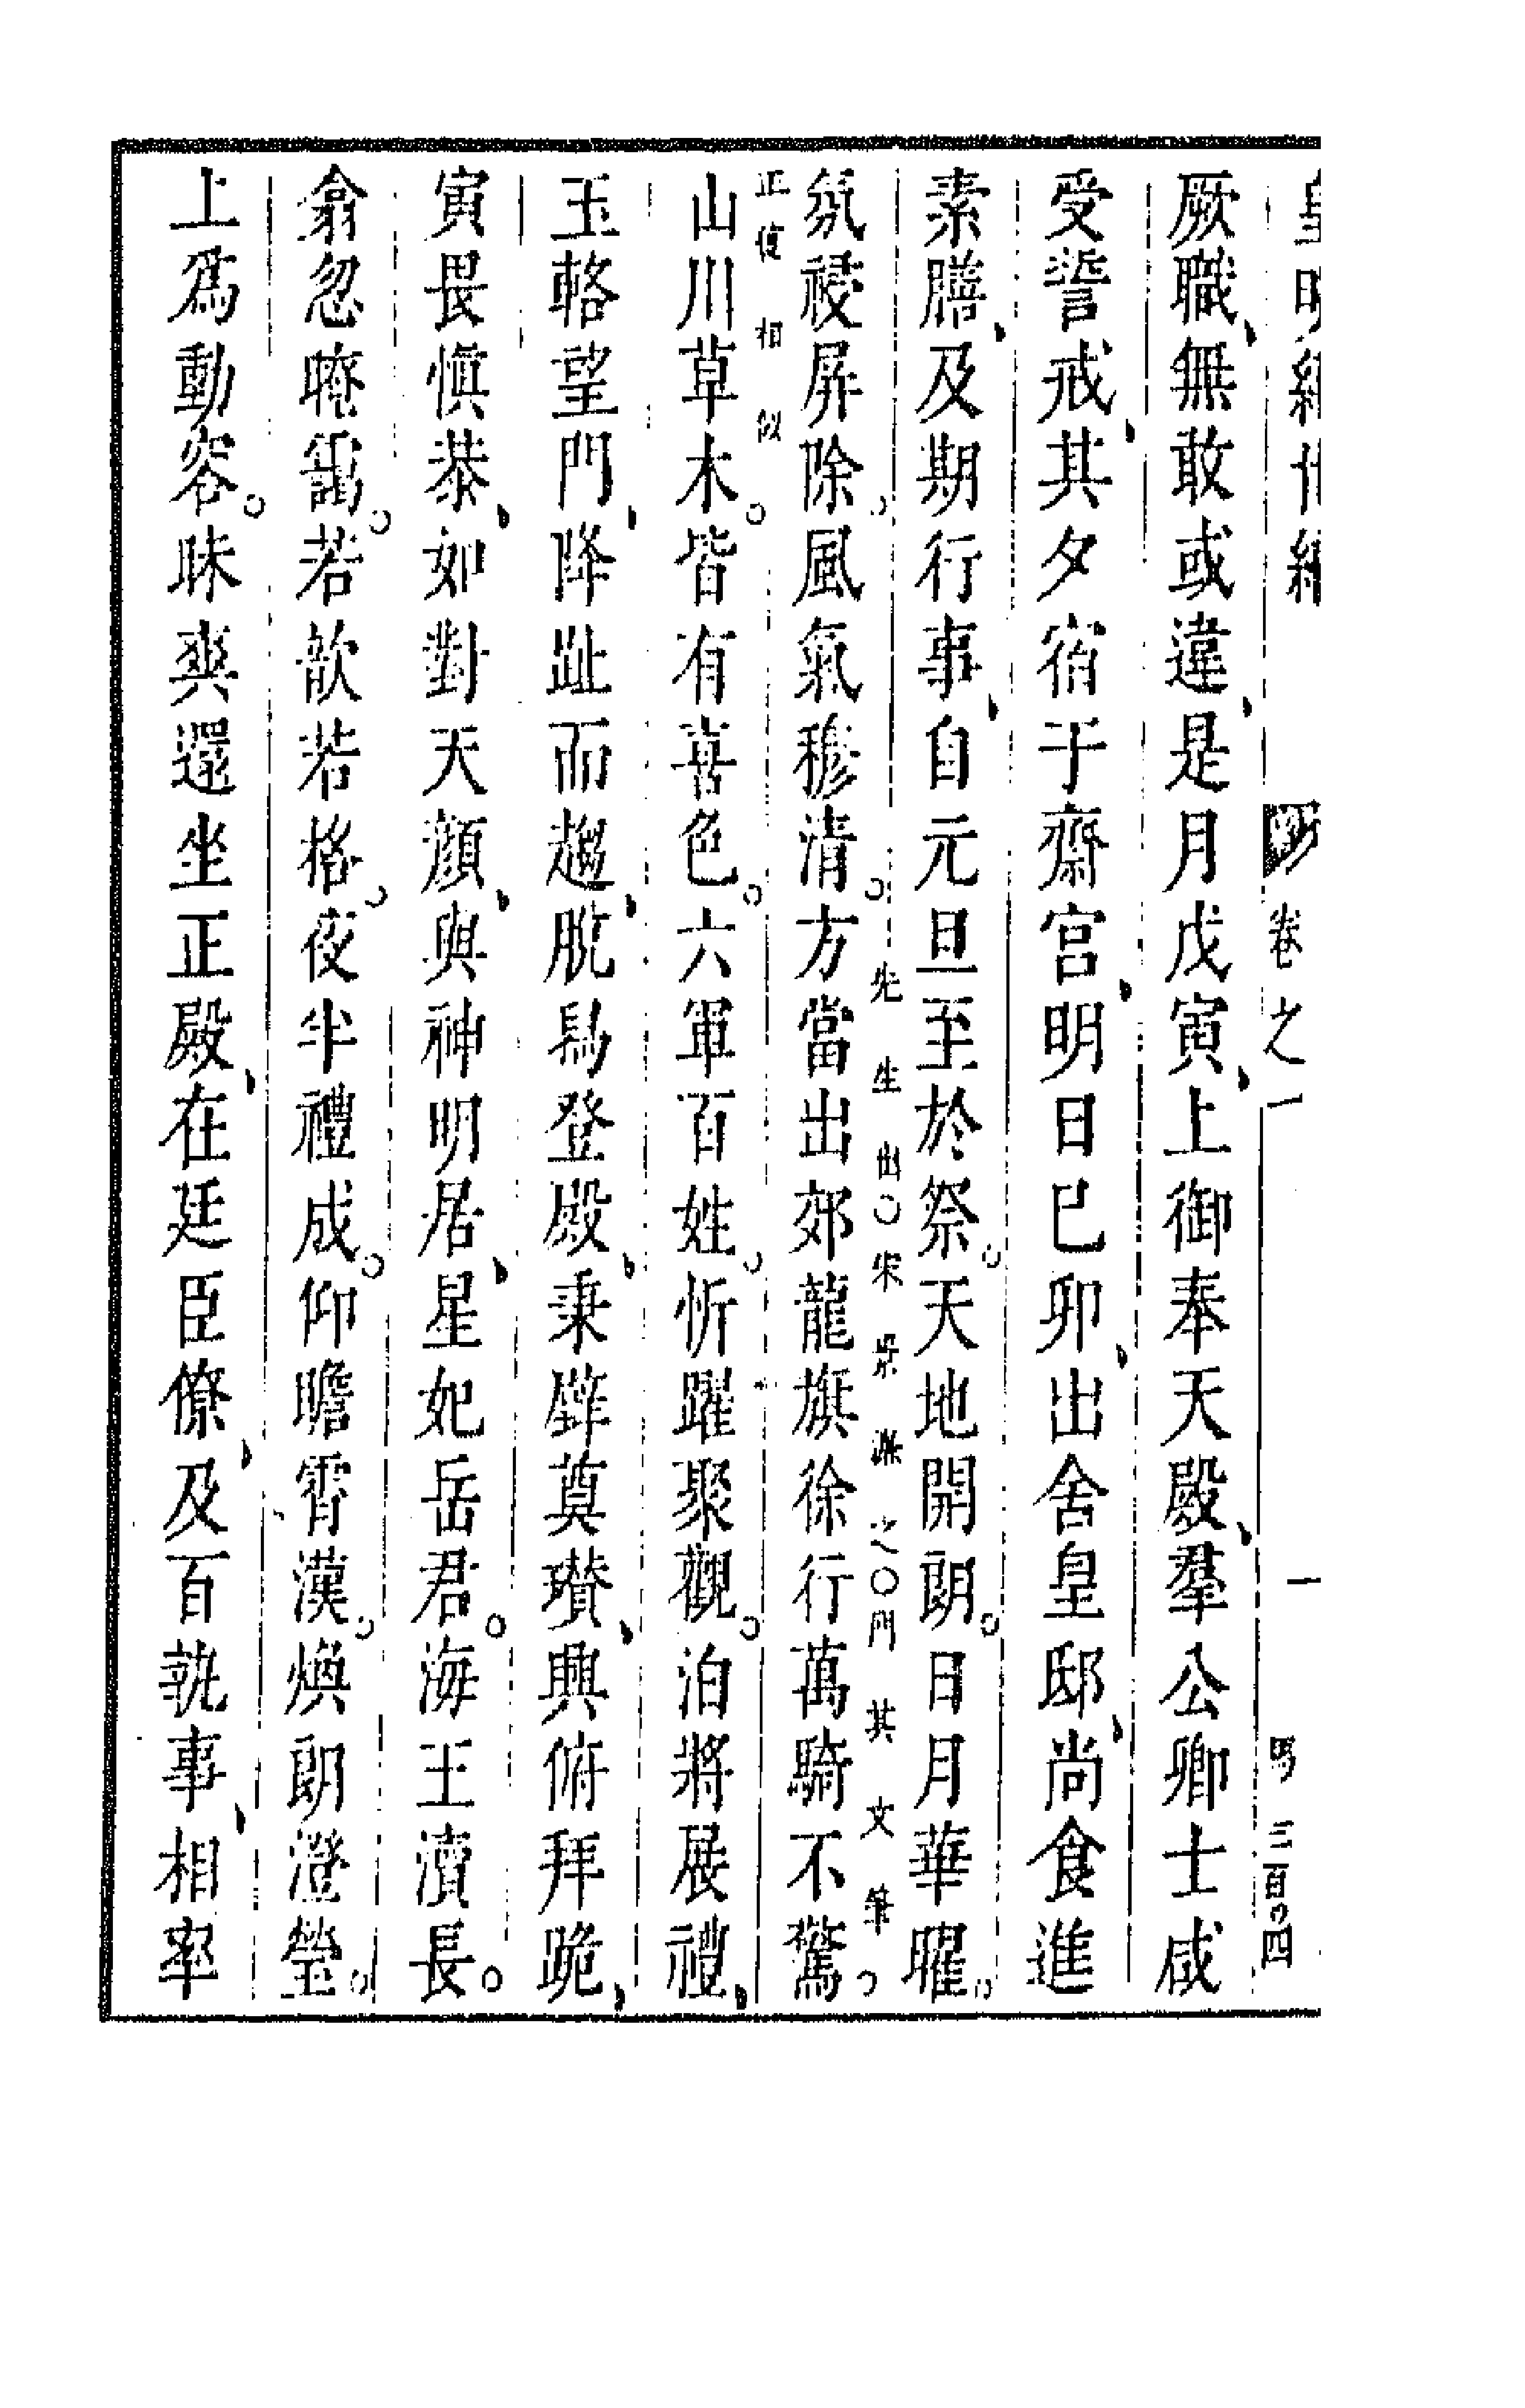 皇明經世編 卷之一 一 馮 三百〇四
厥職、無敢或違、是月戊寅、上御奉天殿、羣公卿士咸
受誓戒、其夕宿于齋宮、明日已卯、出舍皇邸、尚食進
素膳、及期行事、自元旦至於祭。天地開朗。日月華曜。
先生出〇宋景濂之〇門其文筆
氛祲屏除。風氣穆清。方當出郊龍旗徐行萬騎不驚。
正復相似
山川草木。皆有喜色。六軍百姓。忻躍聚觀。洎將展禮、
玉輅望門、降趾而趨、脫舄登殿、秉璧奠瓚、興俯拜跪、
寅畏慎恭、如對天顏、與神明居、星妃岳君。海王瀆長。
翕忽晻靄。若歆若格。夜半禮成。仰瞻霄漢。煥朗澄瑩。
上爲動容。昧爽還坐正殿、在廷臣僚、及百執事、相率